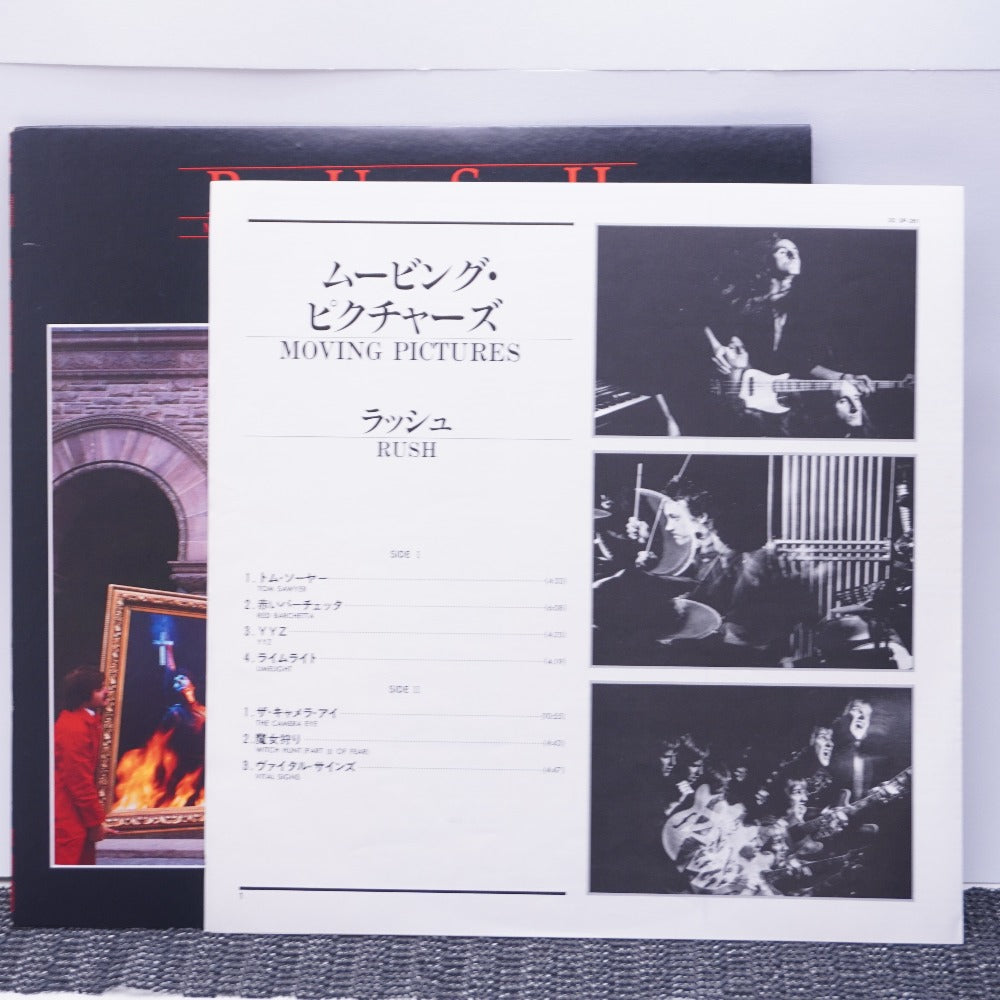 R U S H
ムービング・
ピクチャーズ
MOVING PICTURES
ラッシュ
RUSH
SIDE I
1. トム・ソーヤー (4:33)
TOM SAWYER
2. 赤いバーチェッタ (6:08)
RED BARCHETTA
3. YYZ (4:23)
YYZ
4. ライムライト (4:19)
LIMELIGHT
SIDE II
1. ザ・キャメラ・アイ (10:55)
THE CAMERA EYE
2. 魔女狩り (4:43)
WITCH HUNT (PART III OF FEAR)
3. ヴァイタル・サインズ (4:47)
VITAL SIGNS
1